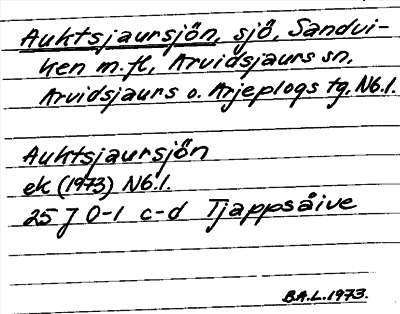 Auktsjaursjön, sjö, Sandvi-
ken m.fl., Arvidsjaurs sn,
Arvidsjaurs o. Arjeplogs tg. Nb.l.
Auktsjaursjön
ek (1973) Nb.l.
25 J 0-1 c-d Tjappsåive
B.A.L. 1973.